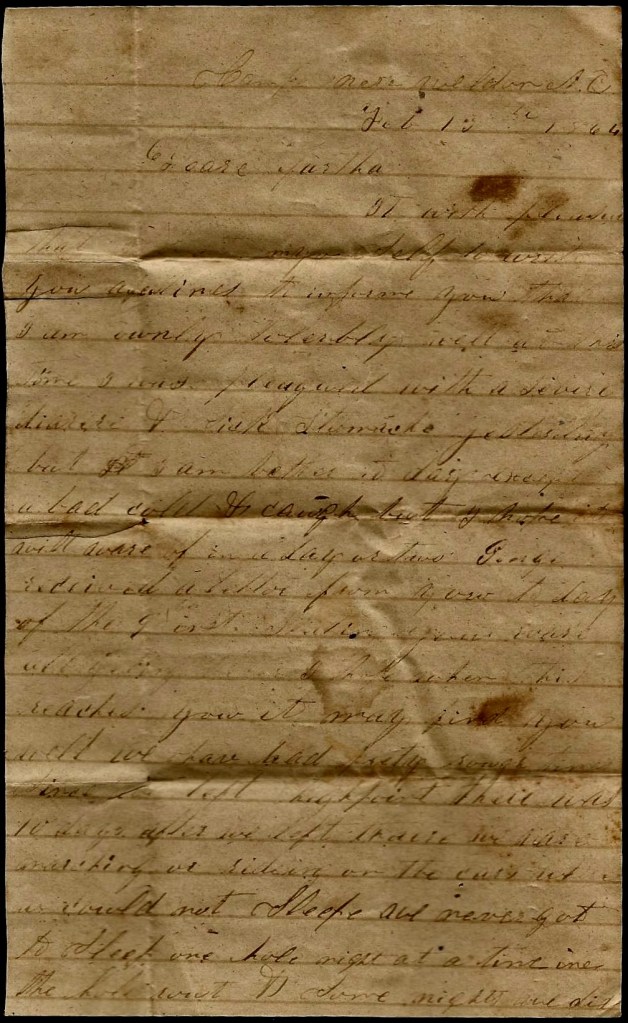 Camp near Weldon N.C
Feb 13 th 186
Deare Martha
It with pleasure
that my self to write
you a few lines to informe you that
I am ownly tolerbly well at this
time I was pleagued with a sevire
diarere & sick Stomache yesterday
but I am better to day except
a bad cold & cough but I hope it
will ware of in a day or two George
received a letter from you to day
of the 9 inst you ware
all I hope when this
reaches you it may find you
well we have had prety rough times
since we left highpoint there was
10 days after we left there we ware
marching or rideing on the cars
we could not Sleepe we never got
to Sleep one hole night at a time
the hole rout & Some nights we did